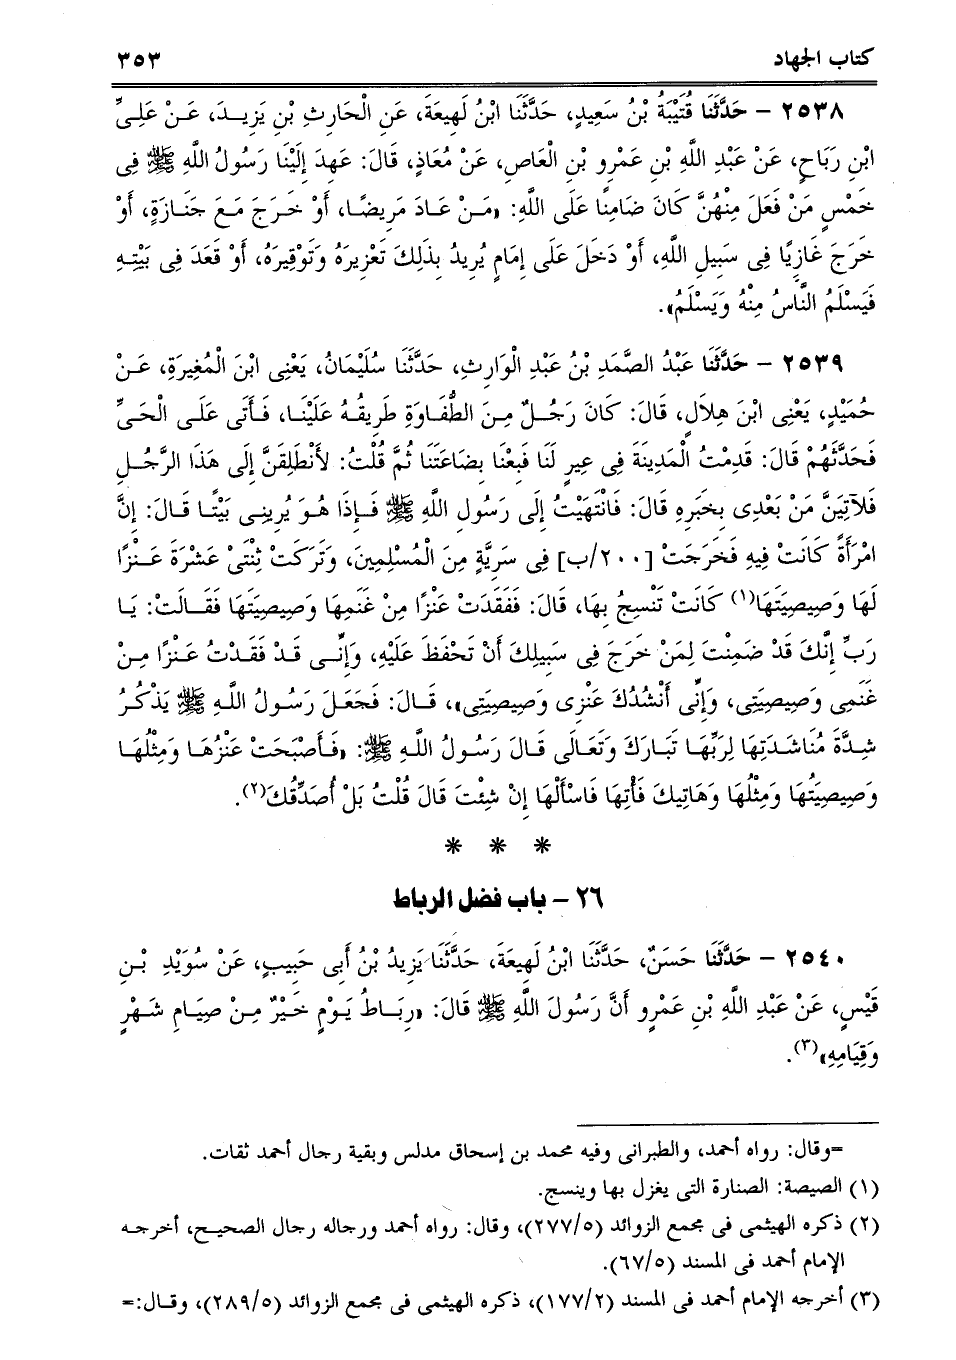 كتاب الجهاد ٣٥٣
٢٥٣٨ - حَدَّثَنَا قُتَيْبَةُ بْنُ سَعِيدٍ، حَدَّثَنَا ابْنُ لَهِيعَةَ، عَنِ الْحَارِثِ بْنِ يَزِيدَ، عَنْ عَلِىِّ
ابْنِ رَبَاحٍ، عَنْ عَبْدِ اللَّهِ بْنِ عَمْرِو بْنِ الْعَاصِ، عَنْ مُعَاذٍ، قَالَ: عَهِدَ إِلَيْنَا رَسُولُ اللَّهِ ﷺ فِى
خَمْسٍ مَنْ فَعَلَ مِنْهُنَّ كَانَ ضَامِنًا عَلَى اللَّهِ: «مَنْ عَادَ مَرِيضًا، أَوْ خَرَجَ مَعَ جَنَازَةٍ، أَوْ
خَرَجَ غَازِيًا فِى سَبِيلِ اللَّهِ، أَوْ دَخَلَ عَلَى إِمَامٍ يُرِيدُ بِذَلِكَ تَعْزِيرَهُ وَتَوْقِيرَهُ، أَوْ قَعَدَ فِى بَيْتِهِ
فَيَسْلَمُ النَّاسُ مِنْهُ وَيَسْلَمُ».
٢٥٣٩ - حَدَّثَنَا عَبْدُ الصَّمَدِ بْنُ عَبْدِ الْوَارِثِ، حَدَّثَنَا سُلَيْمَانُ، يَعْنِى ابْنَ الْمُغِيرَةِ، عَنْ
حُمَيْدٍ، يَعْنِى ابْنَ هِلاَلٍ، قَالَ: كَانَ رَجُلٌ مِنَ الطُّفَاوَةِ طَرِيقُهُ عَلَيْنَا، فَأَتَى عَلَى الْحَىِّ
فَحَدَّثَهُمْ قَالَ: قَدِمْتُ الْمَدِينَةَ فِى عِيرٍ لَنَا فَبِعْنَا بِضَاعَتَنَا ثُمَّ قُلْتُ: لأَنْطَلِقَنَّ إِلَى هَذَا الرَّجُلِ
فَلآتِيَنَّ مَنْ بَعْدِى بِخَبَرِهِ قَالَ: فَانْتَهَيْتُ إِلَى رَسُولِ اللَّهِ ﷺ فَإِذَا هُوَ يُرِينِى بَيْتًا قَالَ: إِنَّ
امْرَأَةً كَانَتْ فِيهِ فَخَرَجَتْ [٢٠٠/ب] فِى سَرِيَّةٍ مِنَ الْمُسْلِمِينَ، وَتَرَكَتْ ثِنْتَىْ عَشْرَةَ عَنْزًا
لَهَا وَصِيصِيَتَهَا(١) كَانَتْ تَنْسِجُ بِهَا، قَالَ: فَفَقَدَتْ عَنْزًا مِنْ غَنَمِهَا وَصِيصِيَتَهَا فَقَالَتْ: يَا
رَبِّ إِنَّكَ قَدْ ضَمِنْتَ لِمَنْ خَرَجَ فِى سَبِيلِكَ أَنْ تَحْفَظَ عَلَيْهِ، وَإِنِّى قَدْ فَقَدْتُ عَنْزًا مِنْ
غَنَمِى وَصِيصِيَتِى، وَإِنِّى أَنْشُدُكَ عَنْزِى وَصِيصِيَتِى»، قَالَ: فَجَعَلَ رَسُولُ اللَّهِ ﷺ يَذْكُرُ
شِدَّةَ مُنَاشَدَتِهَا لِرَبِّهَا تَبَارَكَ وَتَعَالَى قَالَ رَسُولُ اللَّهِ ﷺ: «فَأَصْبَحَتْ عَنْزُهَا وَمِثْلُهَا
وَصِيصِيَتُهَا وَمِثْلُهَا وَهَاتِيكَ فَأْتِهَا فَاسْأَلْهَا إِنْ شِئْتَ قَالَ قُلْتُ بَلْ أُصَدِّقُكَ(٢).
* * *
٢٦ - باب فضل الرباط
٢٥٤٠ - حَدَّثَنَا حَسَنٌ، حَدَّثَنَا ابْنُ لَهِيعَةَ، حَدَّثَنَا يَزِيدُ بْنُ أَبِى حَبِيبٍ، عَنْ سُوَيْدِ بْنِ
قَيْسٍ، عَنْ عَبْدِ اللَّهِ بْنِ عَمْرٍو أَنَّ رَسُولَ اللَّهِ ﷺ قَالَ: «رِبَاطُ يَوْمٍ خَيْرٌ مِنْ صِيَامِ شَهْرٍ
وَقِيَامِهِ»(٣).
=وقال: رواه أحمد، والطبرانى وفيه محمد بن إسحاق مدلس وبقية رجال أحمد ثقات.
(١) الصيصة: الصنارة التى يغزل بها وينسج.
(٢) ذكره الهيثمى فى مجمع الزوائد (٢٧٧/٥)، وقال: رواه أحمد ورجاله رجال الصحيح، أخرجه
الإمام أحمد فى المسند (٦٧/٥).
(٣) أخرجه الإمام أحمد فى المسند (١٧٧/٢)، ذكره الهيثمى فى مجمع الزوائد (٢٨٩/٥)، وقال:=